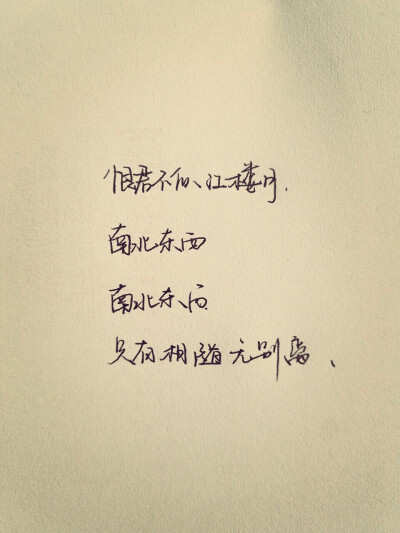 恨君不似江楼月.
南北东西
南北东西
只有相随无别离、